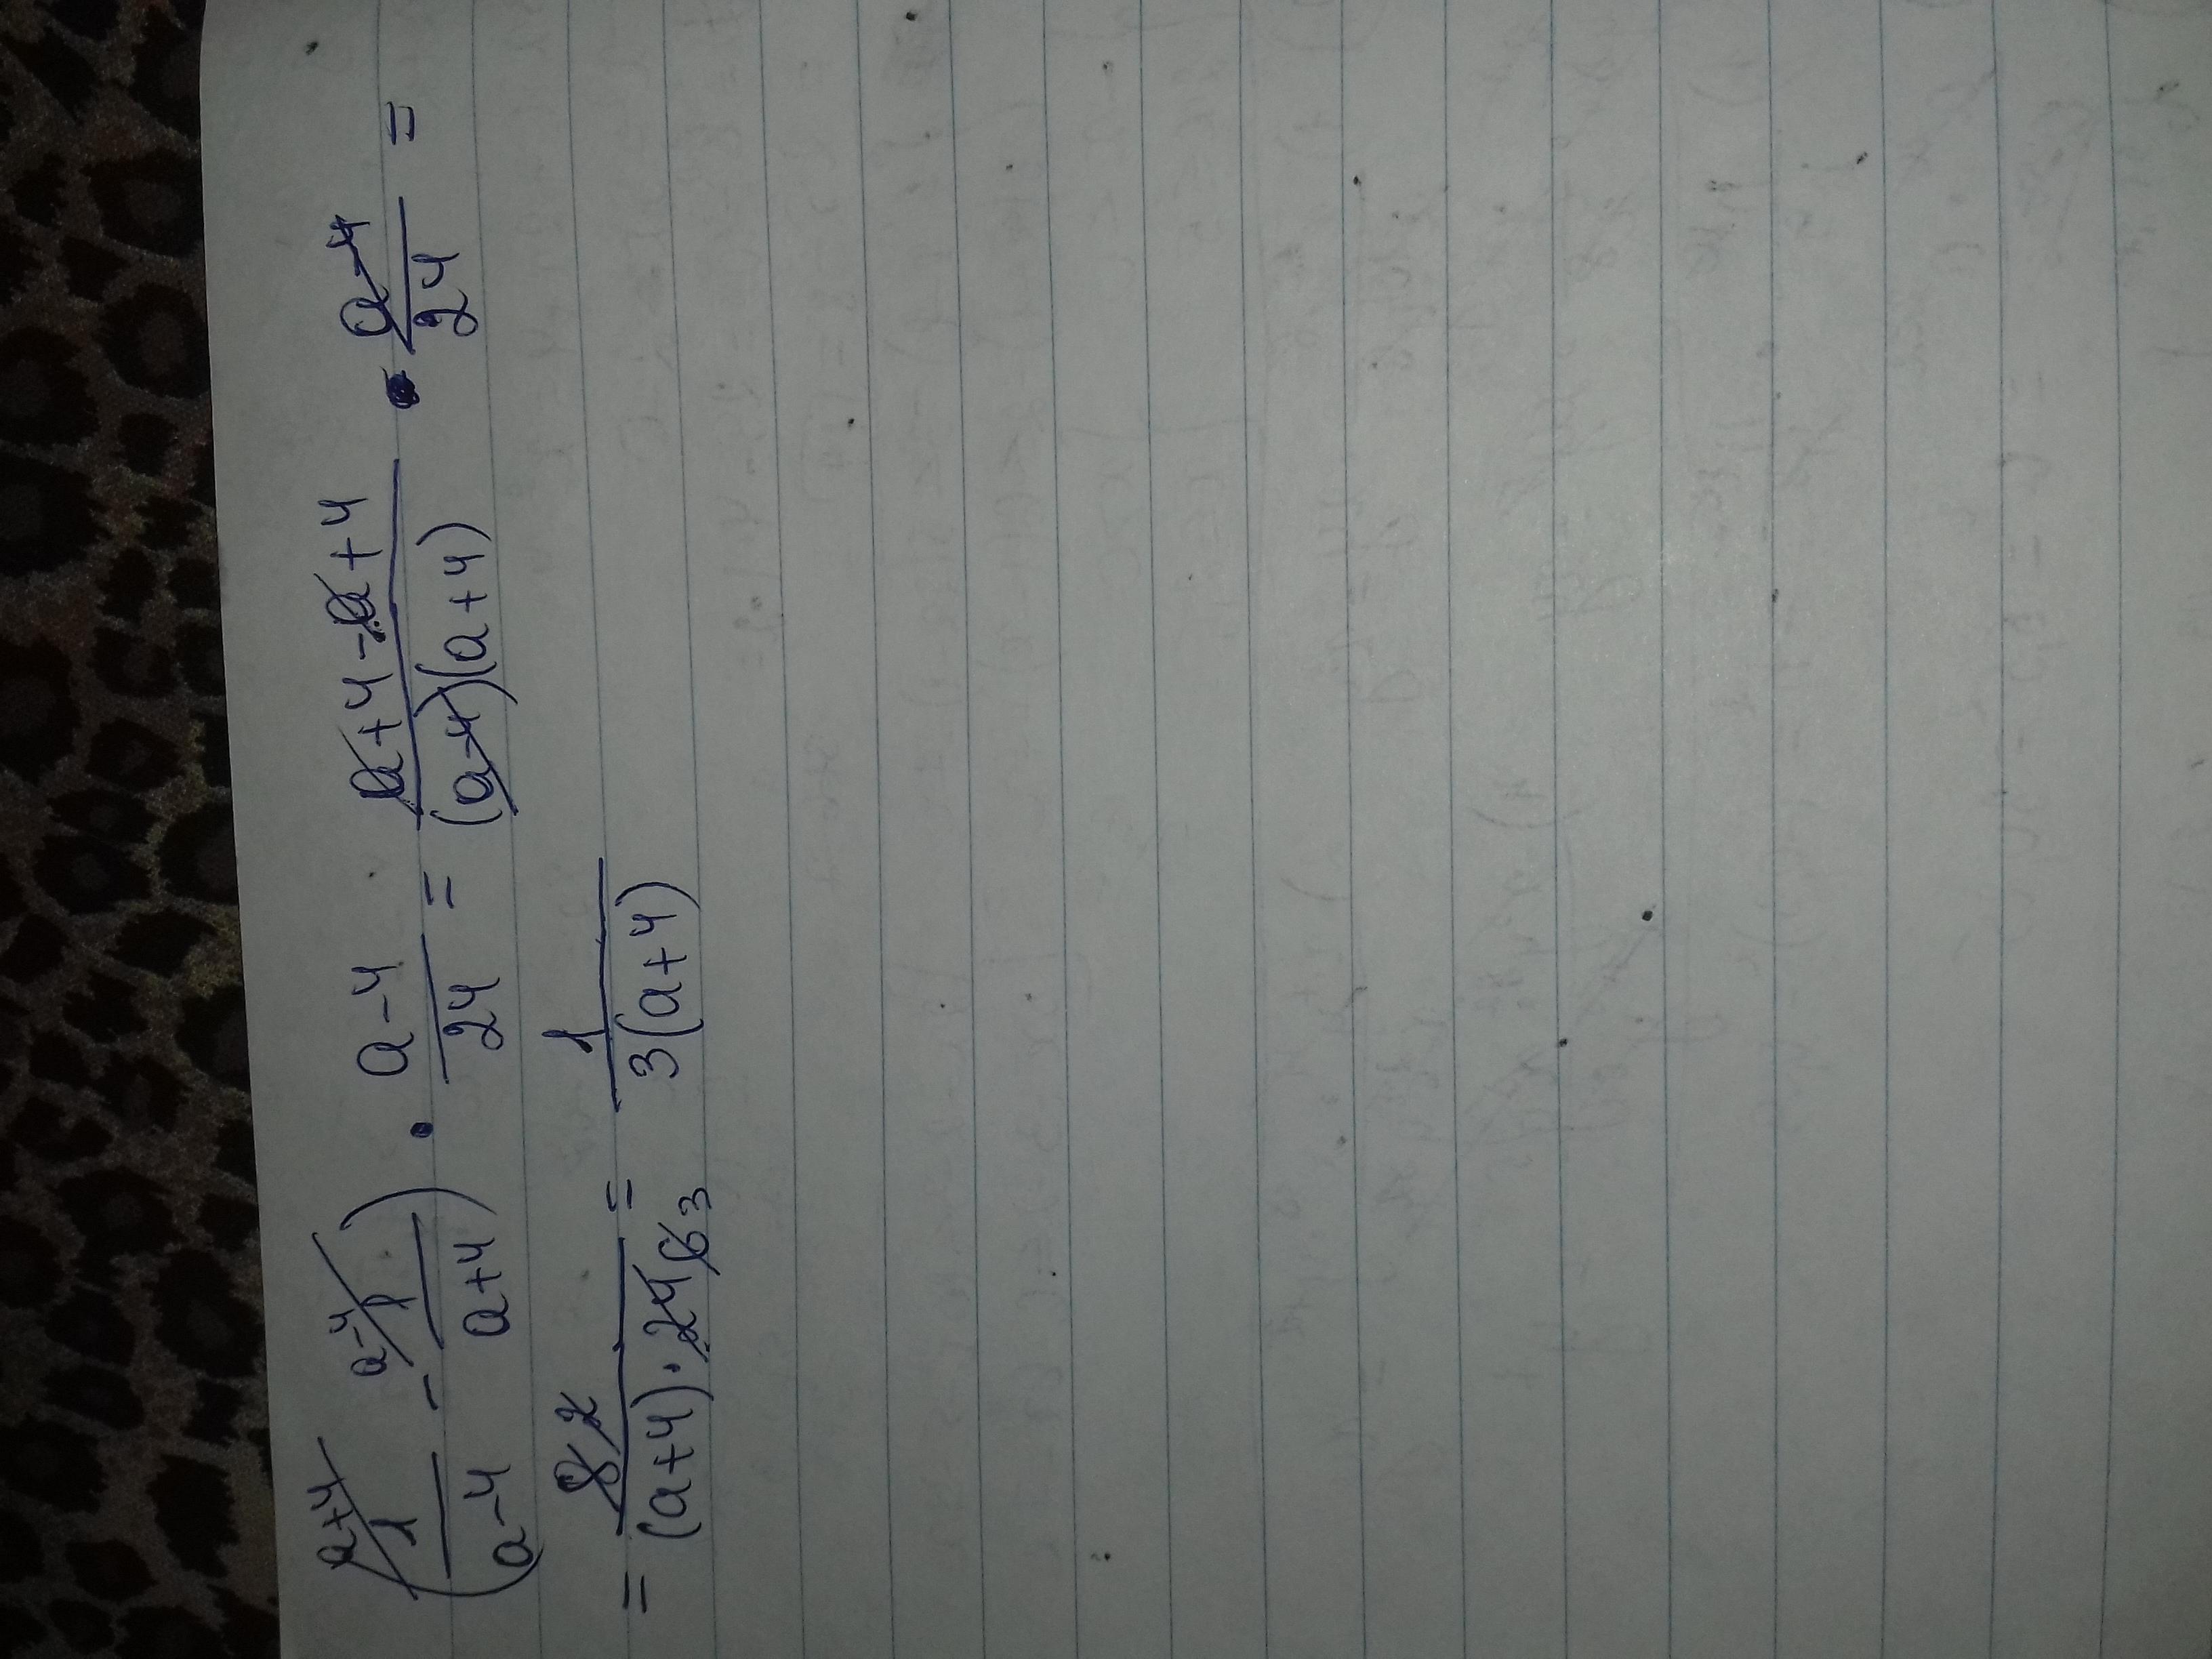 (a+4/ 1/(a-4) - a-4/ 1/(a+4)) · (a-4)/24 = (a+4-a+4)/((a-4)(a+4)) · (a-4)/24 =
= 8 2/((a+4)·24 6 3) = 1/(3(a+4))